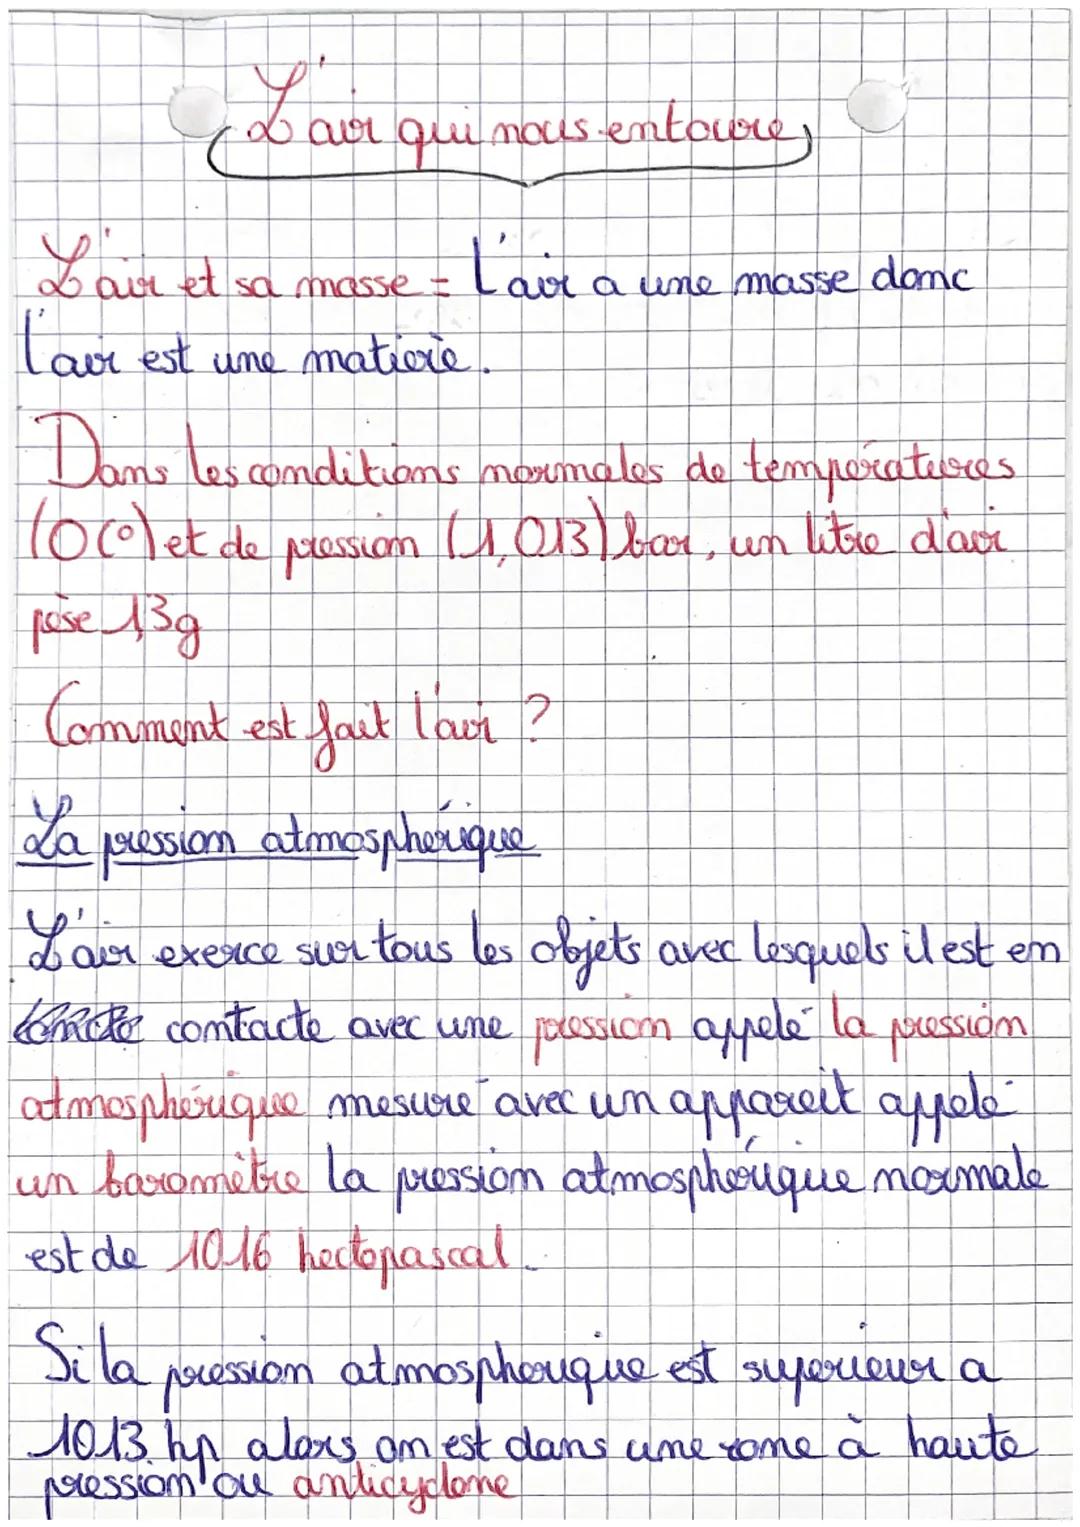 L'air qui nous entoure
L'air et sa masse = L'air a une masse donc
l'air est une matière.
Dans les conditions normales de températures
(0 C°) et de pression (1,013) bar, un litre d'air
pèse 1,3g
Comment est fait l'air ?
La pression atmosphérique
L'air exerce sur tous les objets avec lesquels il est en
contacte avec une pression appelé la pression
atmosphérique mesuré avec un appareit appelé
un baromètre la pression atmosphérique normale
est de 1016 hectopascal.
Si la pression atmospherique est superieur a
1013. hp alors on est dans une zone à haute
pression ou anticyclone